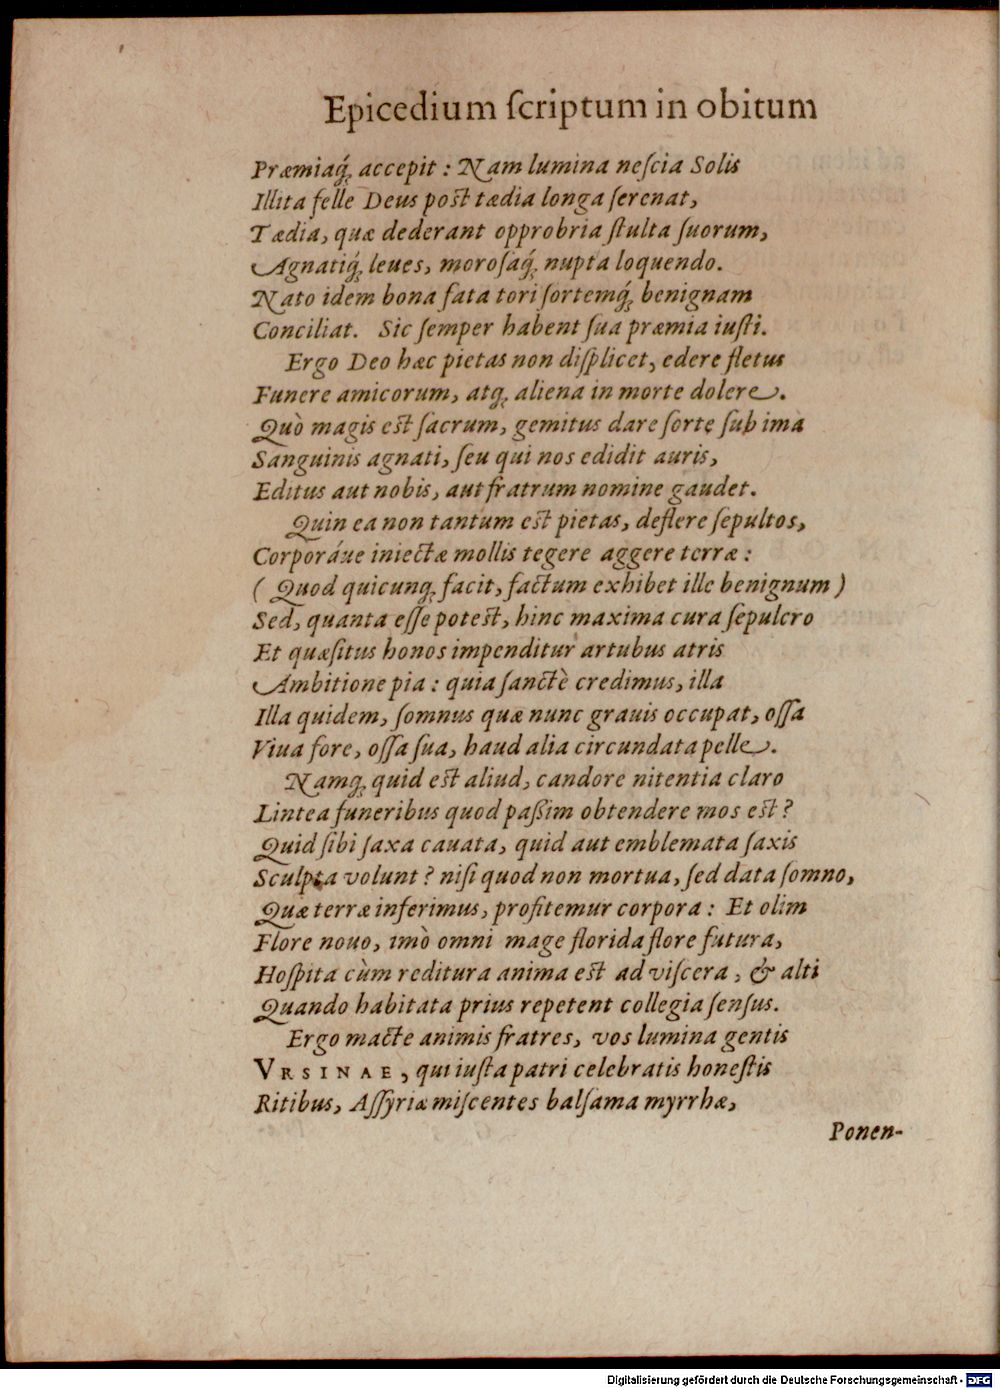 Epicedium ſcriptum in obitum
Præmiaq́; accepit : Nam lumina neſcia Solis
Illita felle Deus post tædia longa ſerenat,
Tædia, quæ dederant opprobria ſtulta ſuorum,
Agnatiq́; leues, moroſaq́; nupta loquendo.
Nato idem bona fata tori ſortemq́; benignam
Conciliat. Sic ſemper habent ſua præmia iuſti.
Ergo Deo hæc pietas non diſplicet, edere fletus
Funere amicorum, atq; aliena in morte dolere.
Quò magis est ſacrum, gemitus dare ſorte ſub ima
Sanguinis agnati, ſeu qui nos edidit auris,
Editus aut nobis, aut fratrum nomine gaudet.
Quin ea non tantum est pietas, deflere ſepultos,
Corporáue iniectæ mollis tegere aggere terræ :
( Quod quicunq; facit, factum exhibet ille benignum )
Sed, quanta eſſe potest, hinc maxima cura ſepulcro
Et quæſitus honos impenditur artubus atris
Ambitione pia : quia ſanctè credimus, illa
Illa quidem, ſomnus quæ nunc grauis occupat, oſſa
Viua fore, oſſa ſua, haud alia circundata pelle.
Namq; quid est aliud, candore nitentia claro
Lintea funeribus quod paßim obtendere mos est ?
Quid ſibi ſaxa cauata, quid aut emblemata ſaxis
Sculpta volunt ? niſi quod non mortua, ſed data ſomno,
Quæ terræ inferimus, profitemur corpora : Et olim
Flore nouo, imò omni mage florida flore futura,
Hoſpita cùm reditura anima est ad viſcera, & alti
Quando habitata prius repetent collegia ſenſus.
Ergo macte animis fratres, vos lumina gentis
VRSINAE, qui iuſta patri celebratis honeſtis
Ritibus, Aſſyriæ miſcentes balſama myrrhæ,
Ponen-
Digitalisierung gefördert durch die Deutsche Forschungsgemeinschaft - DFG